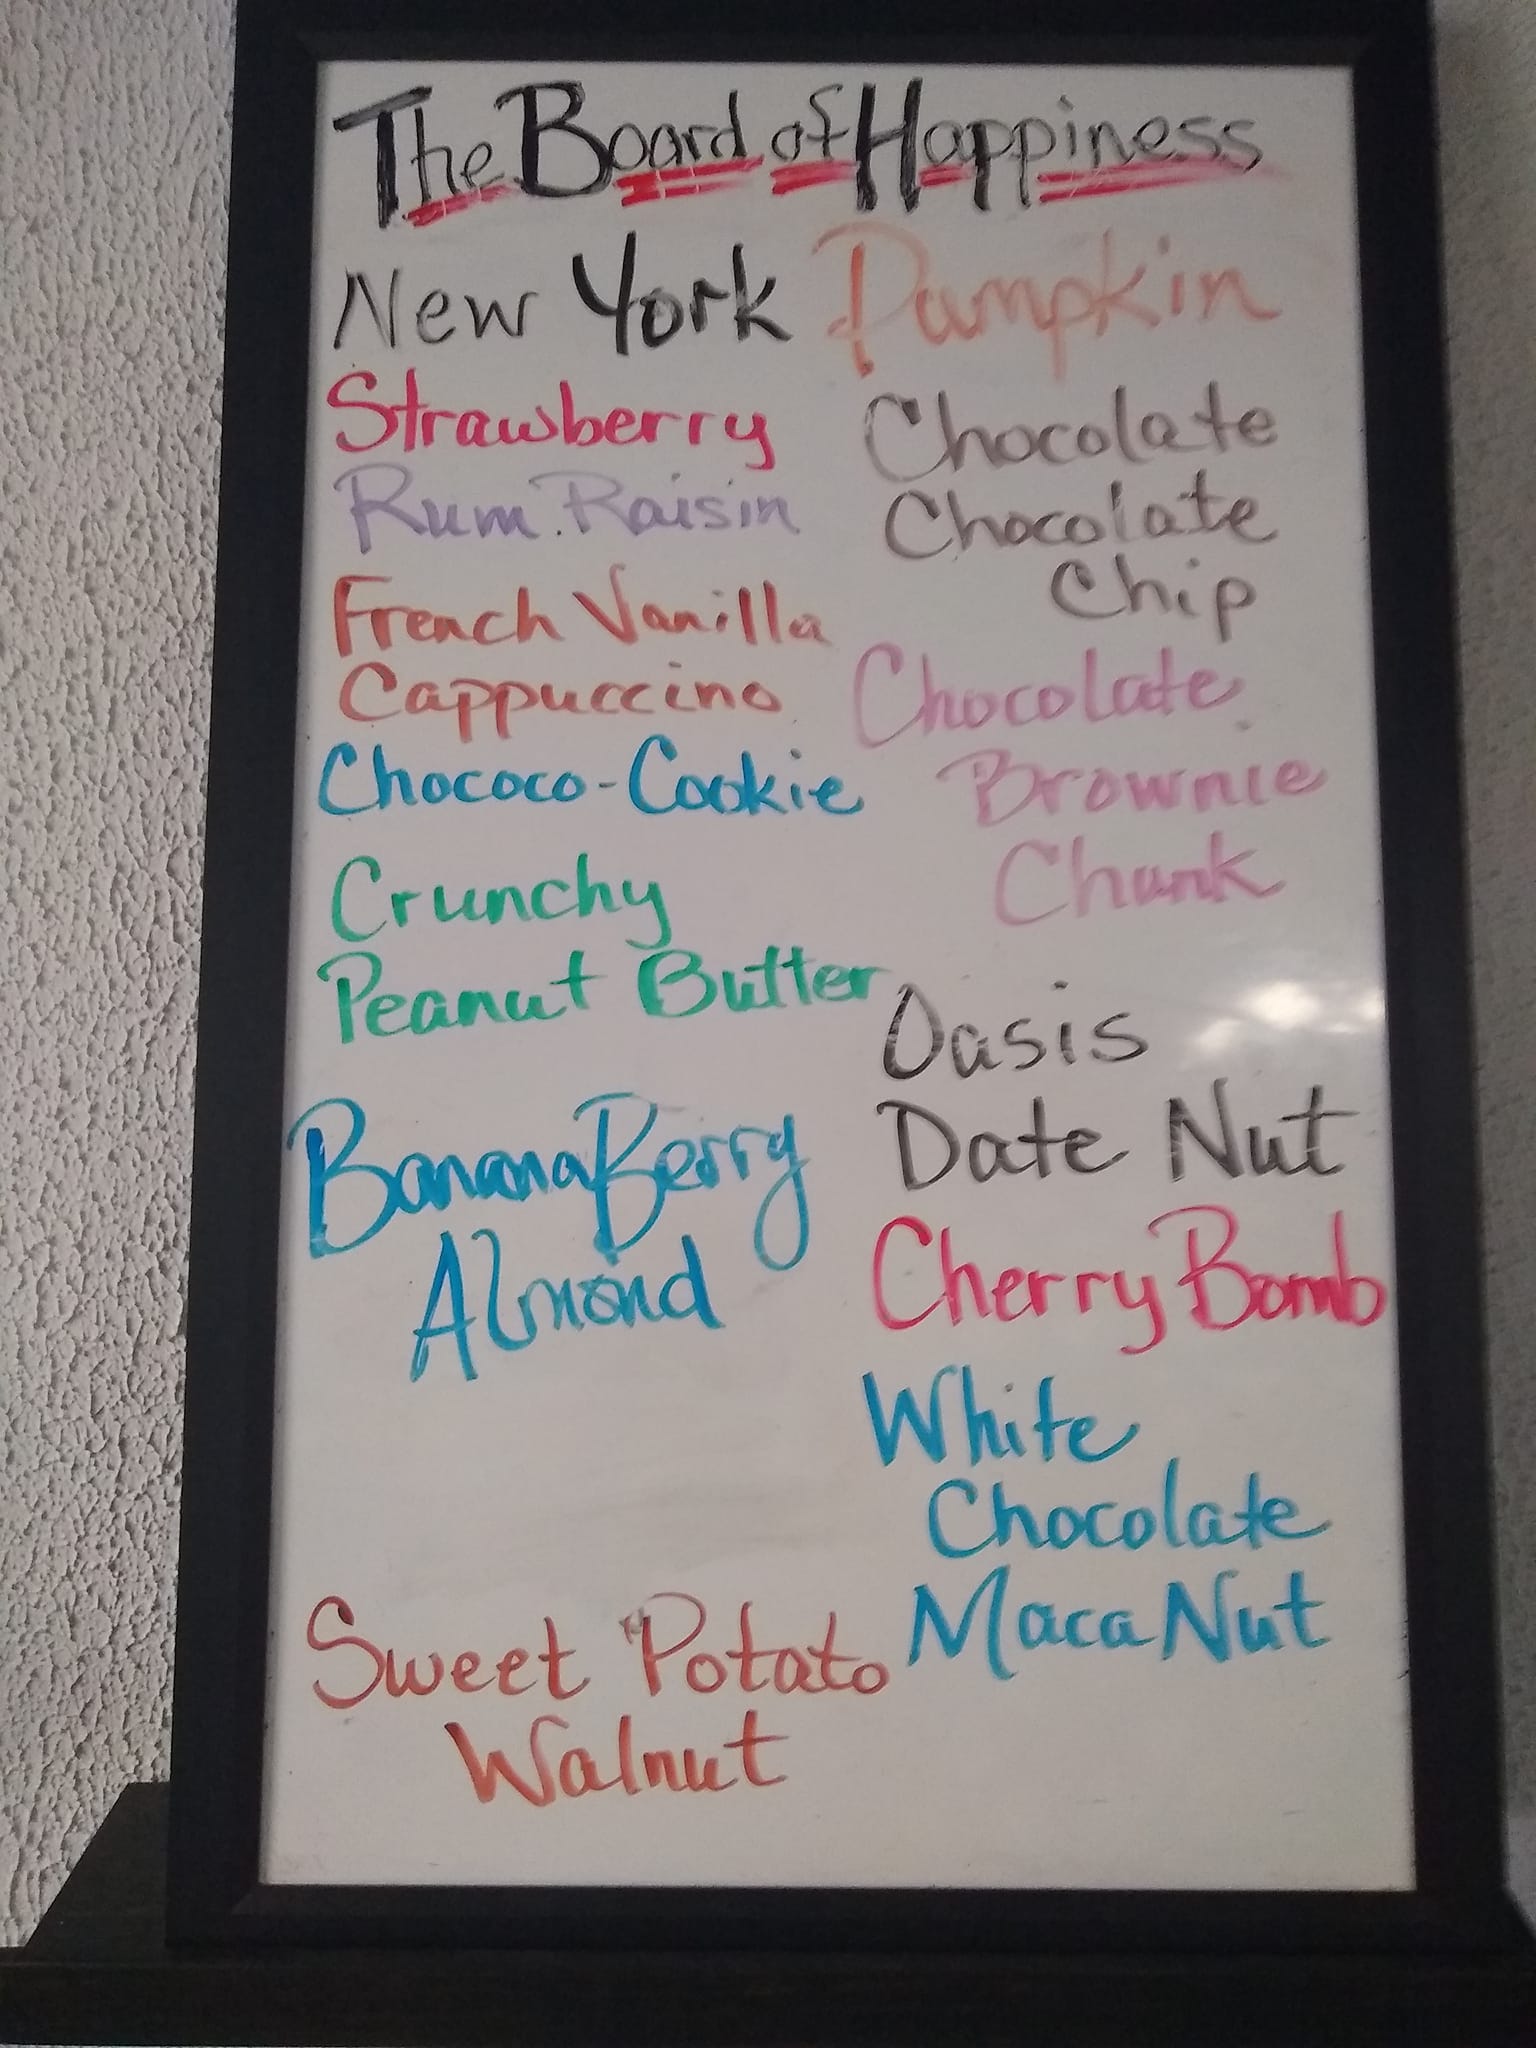 The Board of Happiness
New York
Strawberry
Rum Raisin
French Vanilla
Cappuccino
Chococo-Cookie
Crunchy
Peanut Butter
BananaBerry
Almond
Sweet Potato
Walnut
Pumpkin
Chocolate
Chocolate
Chip
Chocolate
Brownie
Chunk
Oasis
Date Nut
Cherry Bomb
White
Chocolate
Maca Nut